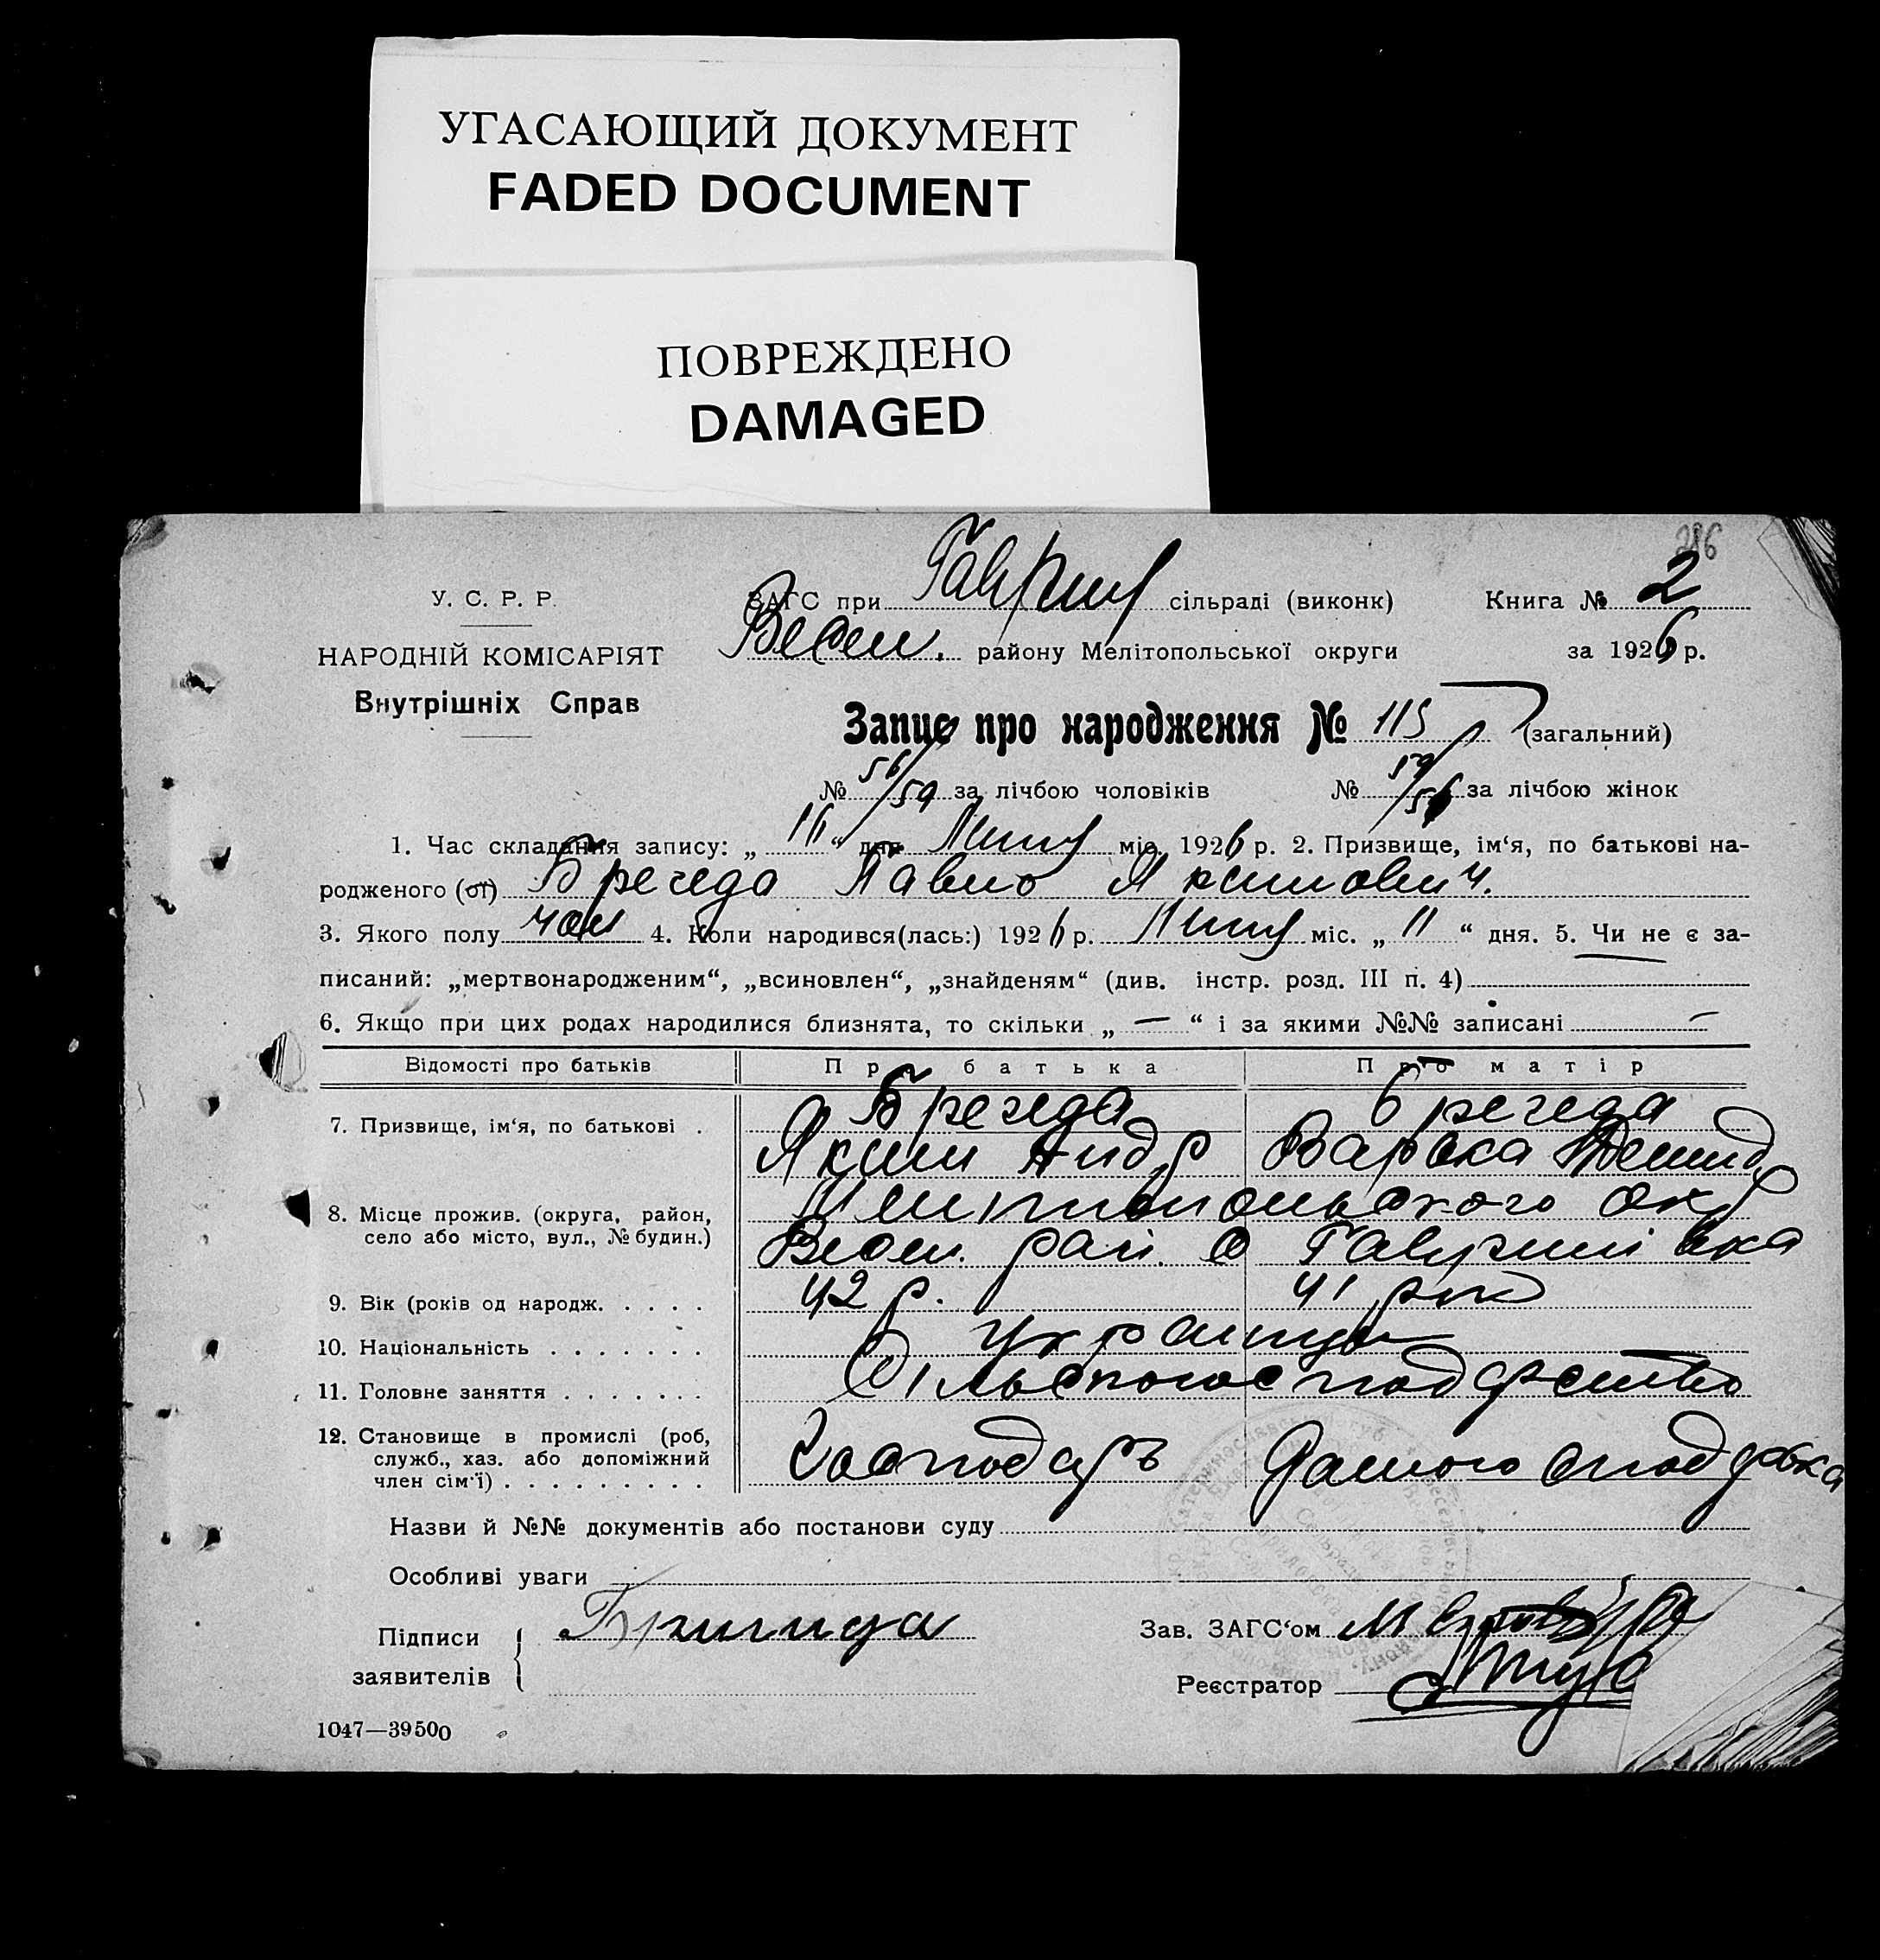 УГАСАЮЩИЙ ДОКУМЕНТ
FADED DOCUMENT
ПОВРЕЖДЕНО
DAMAGED
286
У. С. Р. Р.
НАРОДНІЙ КОМІСАРІЯТ
Внутрішніх Справ
ЗАГС при сільраді (виконк)
Весел. району Мелітопольської округи
Книга № 2
за 1926 р.
Запис про народження № 115 (загальний)
№ 56/59 за лічбою чоловіків № 59/56 за лічбою жінок
1. Час складання запису: „ “ дня міс. 1926 р. 2. Призвище, ім‘я, по батькові на-
родженого (ої) Бречеда Павло Якимович.
3. Якого полу чол 4. Коли народився(лась:) 1926 р. міс. „ 11 “ дня. 5. Чи не є за-
писаний: „мертвонародженим“, „всиновлен“, „знайденям“ (див. інстр. розд. III п. 4)
6. Якщо при цих родах народилися близнята, то скільки „ — “ і за якими №№ записані —
Відомості про батьків Про батька Про матір
7. Призвище, ім‘я, по батькові . Бречеда Бречеда
Яким Андр Варвка Демид
8. Місце прожив. (округа, район, село або місто, вул., № будин.) Мелітопольского окр
Весел. рай. с Гаврилівка
9. Вік (років од народж. . . . . 42 р. 41 рік
10. Національність . . . . . . . українці
11. Головне заняття . . . . . . . Сільське господарство
12. Становище в промислі (роб, служб., хаз. або допоміжний член сім‘ї) . . . . . . . . . Господарь
Назви й №№ документів або постанови суду
Особливі уваги
Підписи заявителів
Зав. ЗАГС‘ом
Реєстратор
1047—39500